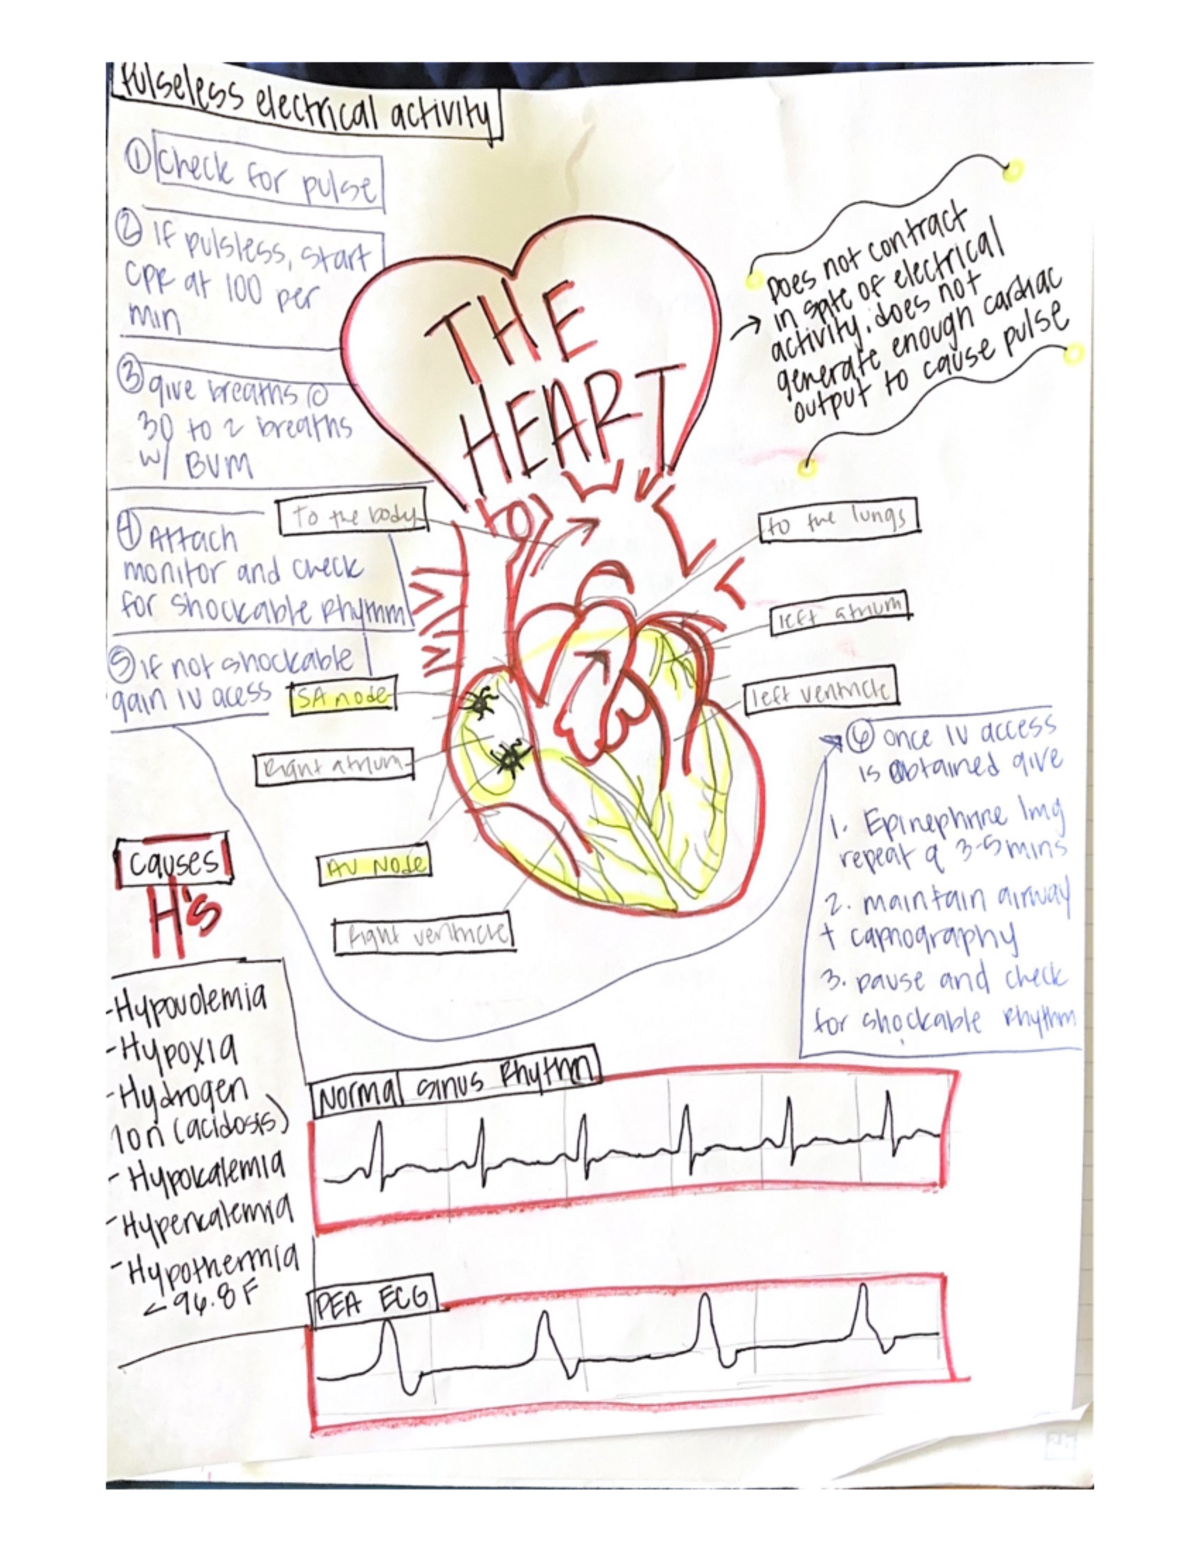 Pulseless electrical activity
① Check for pulse
② If pulsless, start
CPR at 100 per
min
③ give breaths @
30 to 2 breaths
w/ BVM
④ Attach
monitor and check
for shockable rhythm
⑤ if not shockable
gain IV acess
THE
HEART
Does not contract
→ in spite of electrical
activity. does not
generate enough cardiac
output to cause pulse
To the body
to the lungs
left atrium
left ventricle
SA node
Right atrium
AV Node
Right ventricle
⑥ once IV access
is obtained give
1. Epinephrine 1mg
repeat q 3-5 mins
2. maintain airway
+ capnography
3. pause and check
for shockable Rhythm
Causes
H's
-Hypovolemia
-Hypoxia
-Hydrogen
ion (acidosis)
-Hypokalemia
-Hyperkalemia
-Hypothermia
<96.8 F
Normal sinus Rhythm
PEA ECG